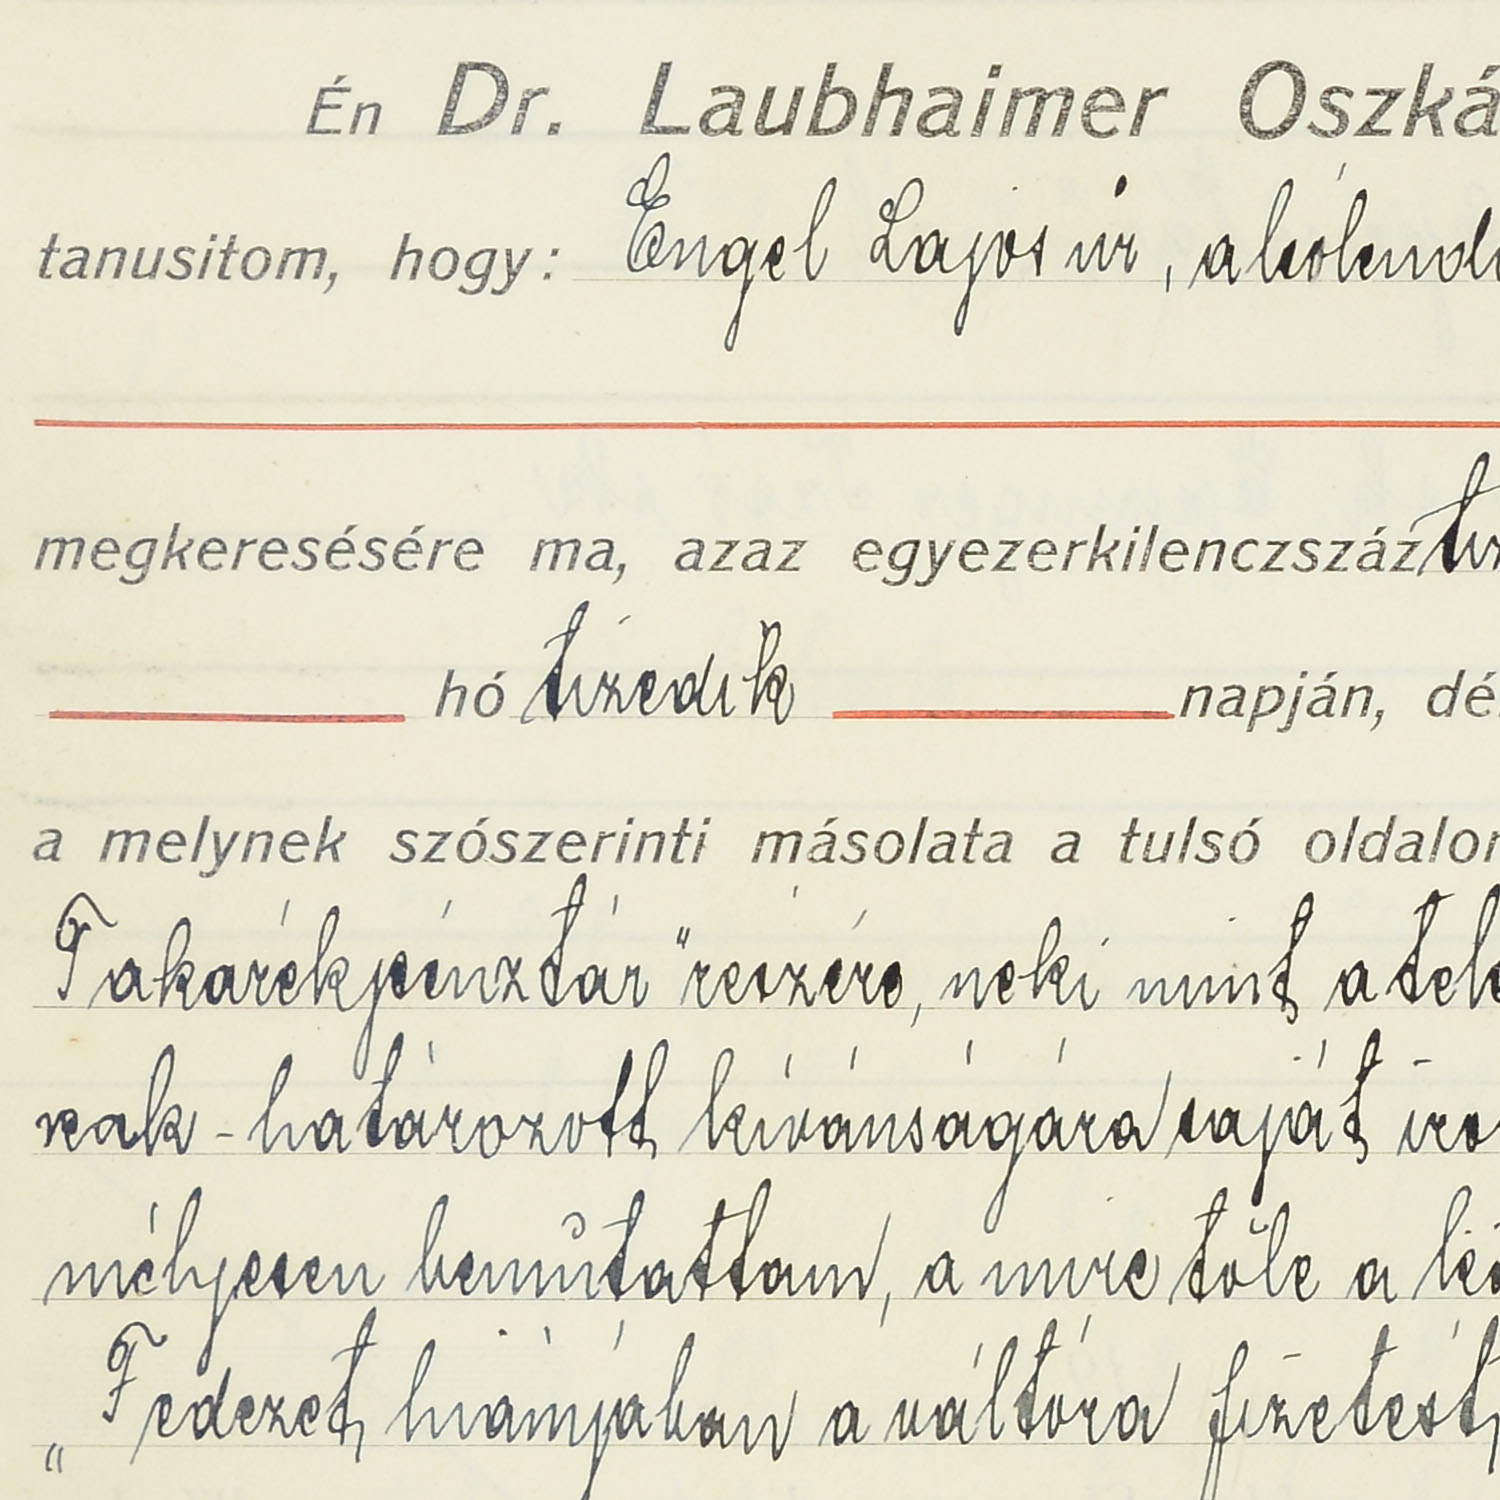 Én Dr. Laubhaimer Oszká
tanusitom, hogy: Engel Lajos úr,
megkeresésére ma, azaz egyezerkilenczszáz
hó tizedik napján, dé
a melynek szószerinti másolata a tulsó oldalon
Takarékpénztár" részére, neki mint a tele
nak - határozott kivánságára saját iro
mélyesen bemutattam, a mire tőle a
„Fedezet hiányában a váltóra fizetést